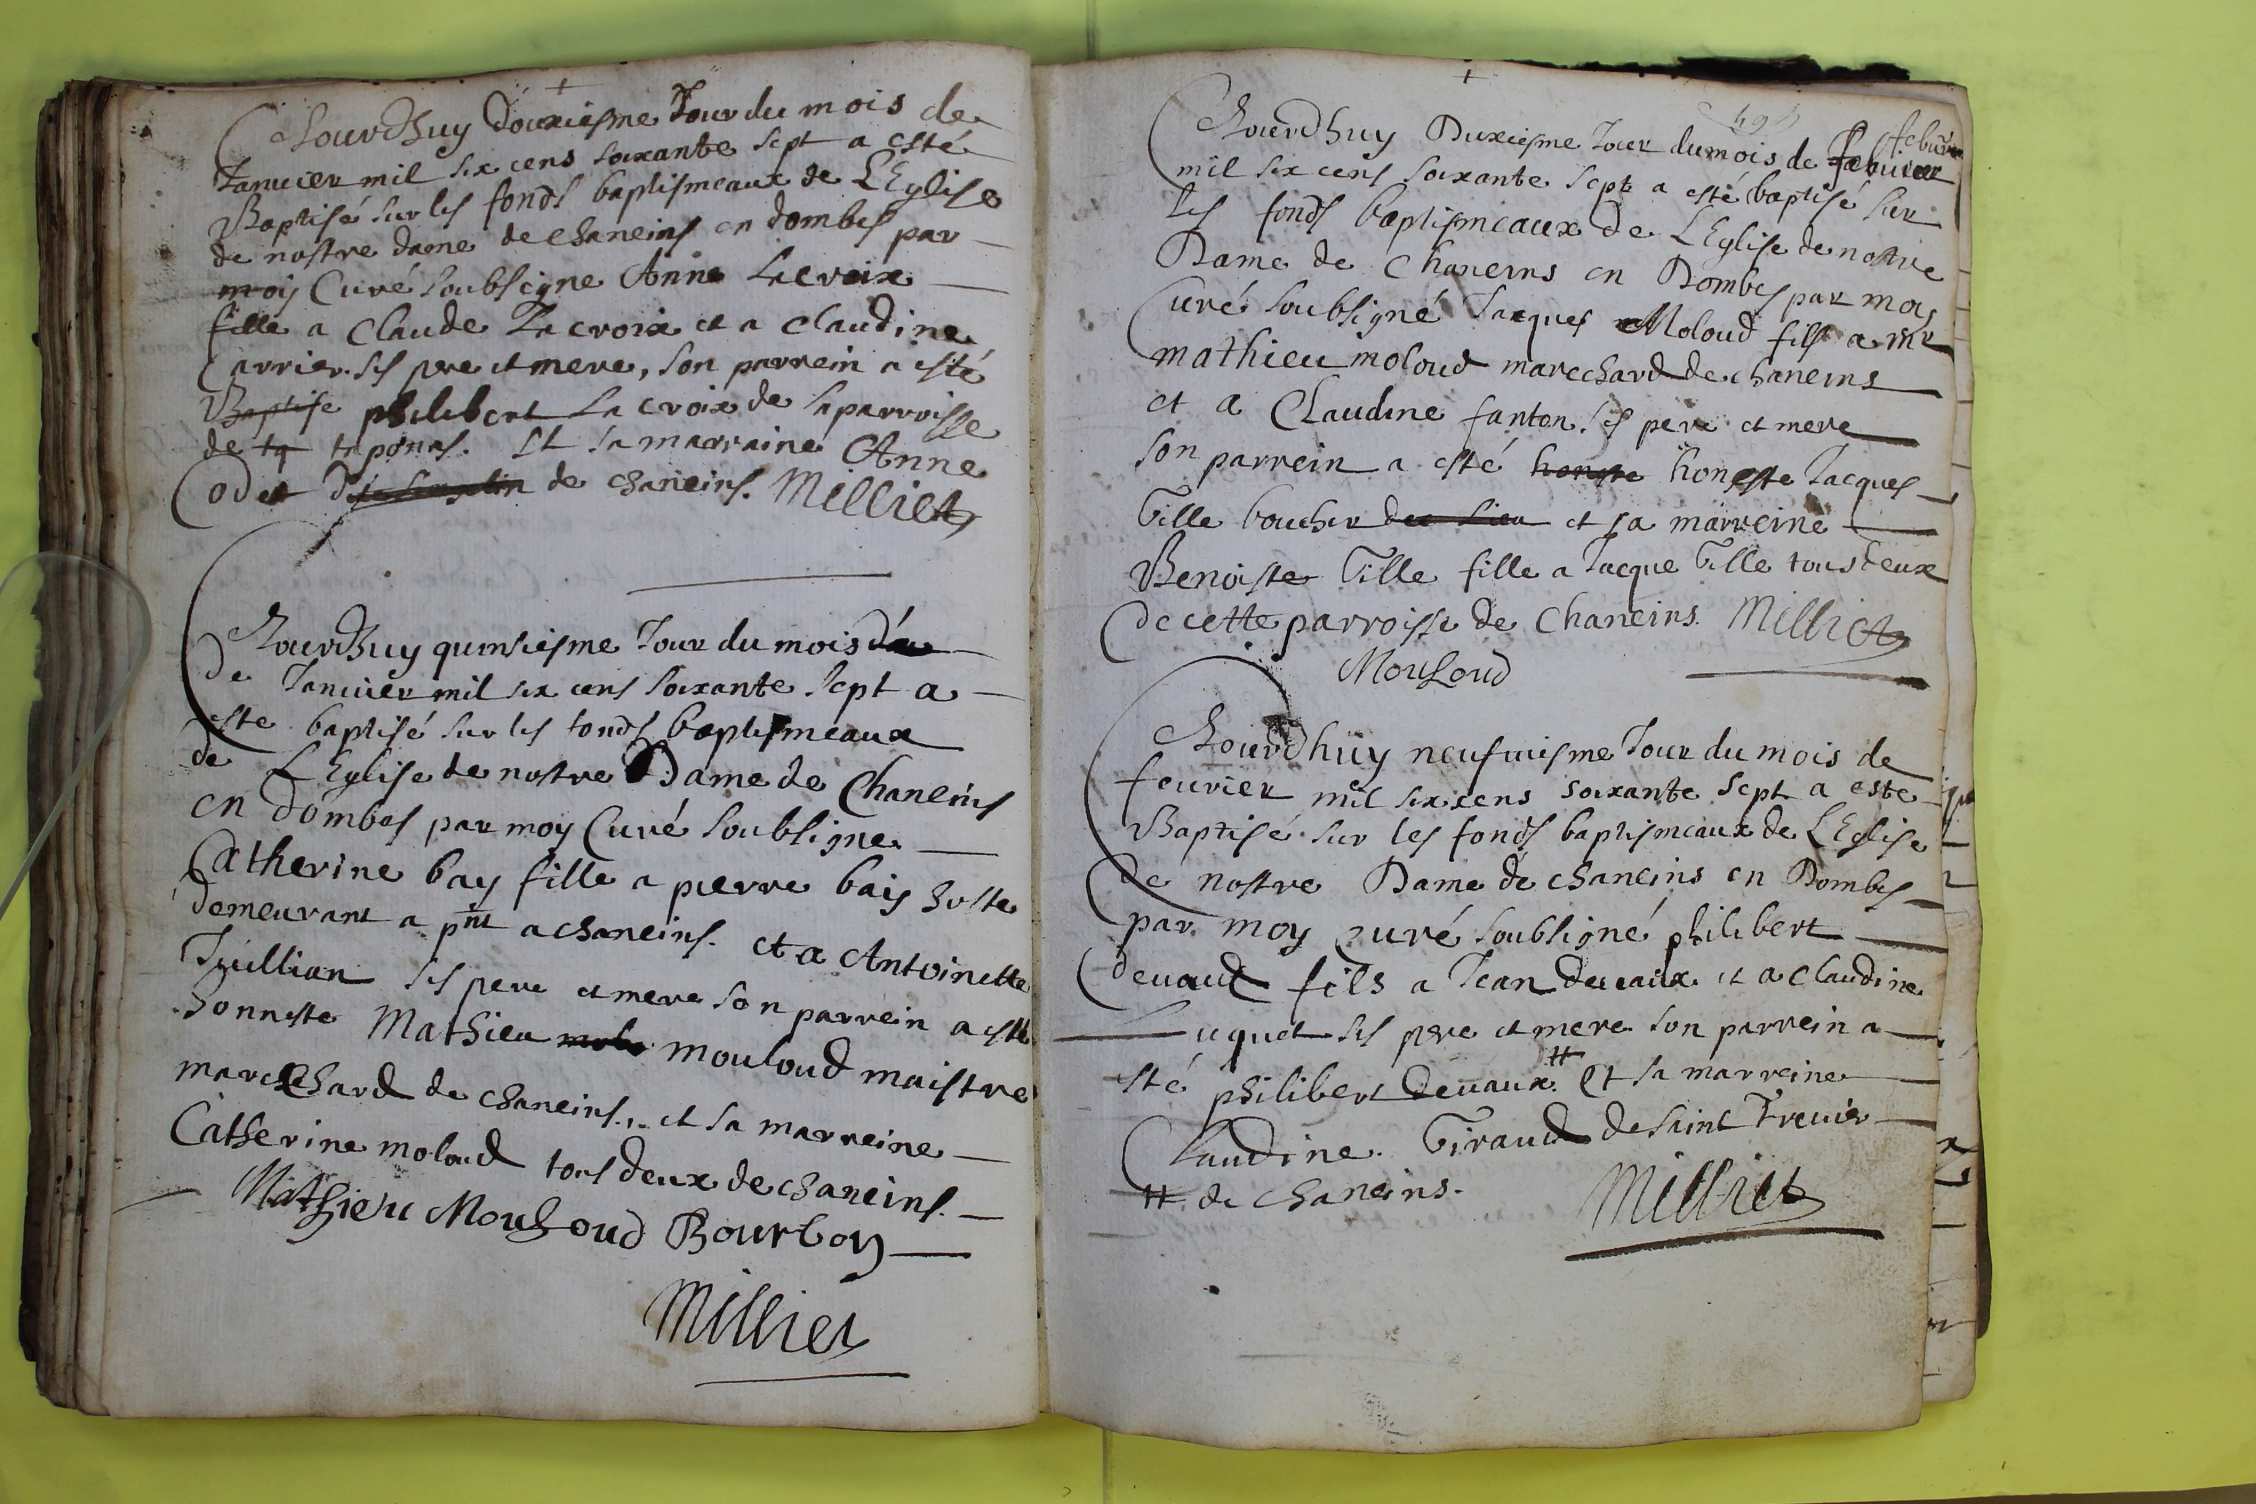 +
Jourdhuy douxiesme Jour du mois de
Januier mil six cens soixante sept a esté
Baptisé sur les fonds baptismeaux de LEglise
de nostre dame de chaneins en dombes par
moy Curé soubsigne Anne Lacroix
fille a Claude Lacroix et a Claudine
Carrier ses pere et mere, son parrein a esté
Baptise philibert La croix de la parroisse
de ta taponas. Et sa marraine Anne
Codet de chaneins. Milliet
Jourdhuy quinsiesme Jour du mois
de Januier mil six cens soixante sept a
este baptisé sur les fonds baptismeaux
de LEglise de nostre Dame de Chaneins
en dombes par moy Curé soubsigne
Catherine bay fille a pierre bay hoste
demeurant a pnt a chaneins. et a Antoinette
Juillian ses pere et mere son parrein a esté
honneste Mathieu molo mouloud maistre
marechard de chaneins., et sa marreine
Catherine moloud tous deux de chaneins.
Mathieu Mouloud Bourbon
Milliet
+
Jourdhuy Duxiesme Jour du mois de Febuier
mil six cens soixante sept a esté baptisé sur
les fonds baptismeaux de LEglise de nostre
Dame de Chaneins en Dombes par moy
Curé soubsigné Jacques Moloud fils a mr
mathieu moloud marechard de chaneins
et a Claudine fanton ses pere et mere
son parrein a esté honeste honeste Jacques
Gille boucher du lieu et sa marreine
Benoiste Gille fille a Jacque Gille tous deux
de cette parroisse de Chaneins. Milliet
Mouloud
Jourdhuy neufuiesme Jour du mois de
feurier mil six cens soixante sept a este
Baptisé sur les fonds baptismeaux de LEglise
de nostre Dame de chaneins en Dombes
par moy curé soubsigné philibert
deuaux fils a Jean deuaux et a Claudine
Luquet ses pere et mere son parrein a
esté philibert Deuaux # Et sa marreine
Claudine Giraud de saint Treuier
# de chaneins.
Milliet